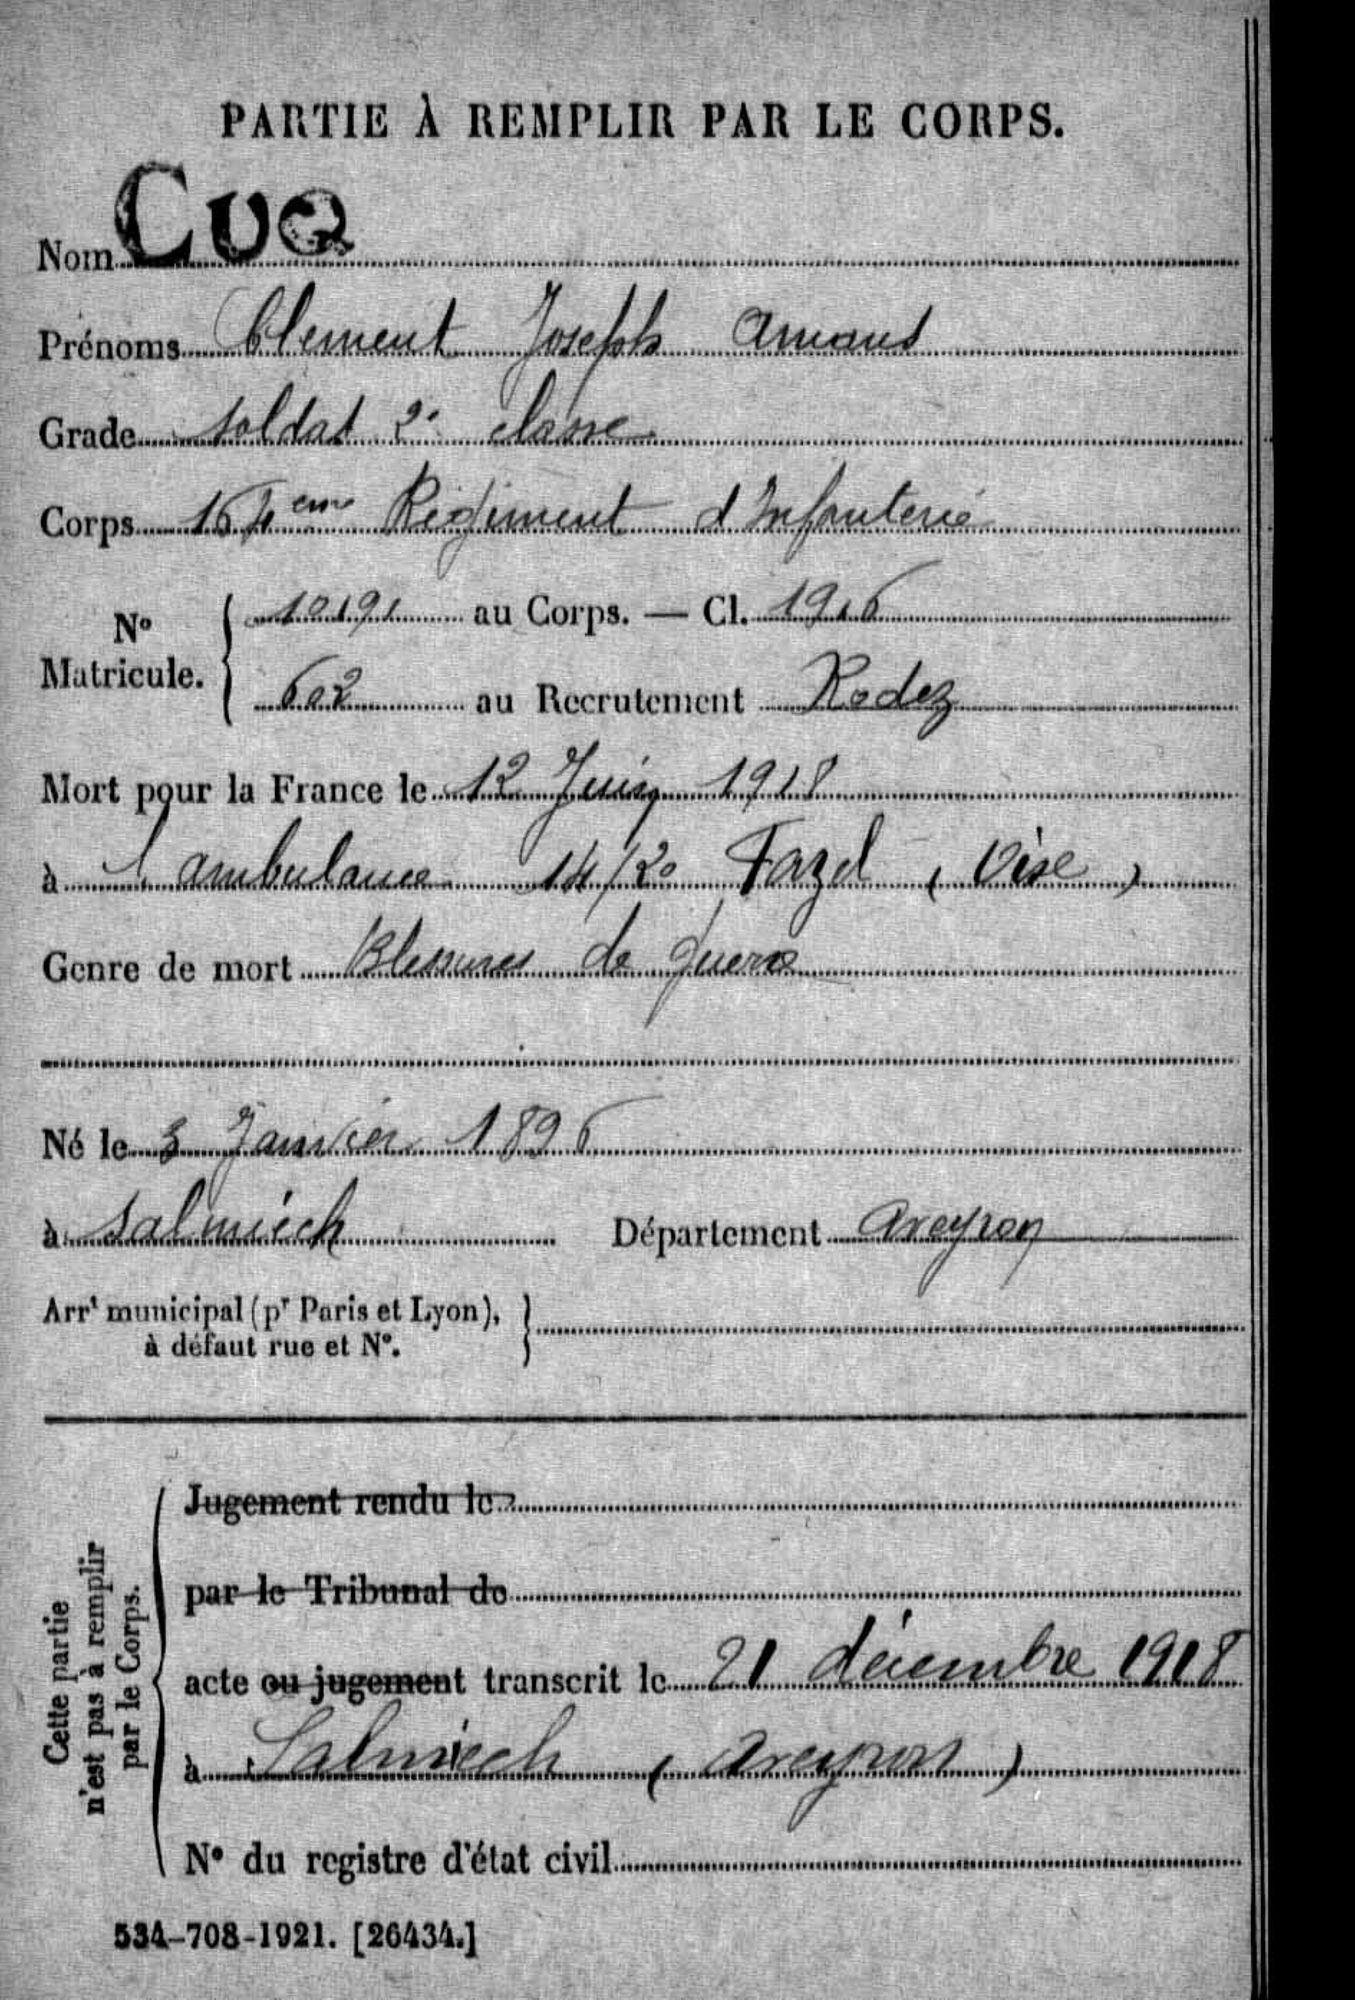 PARTIE À REMPLIR PAR LE CORPS.
Nom CUQ
Prénoms Clement Joseph Amand
Grade soldat 2e classe
Corps 164eme Régiment d'Infanterie
N° Matricule. 10191 au Corps. — Cl. 1916
602 au Recrutement Rodez
Mort pour la France le 12 Juin 1918
à l'ambulance 14/20 Fazel (Oise)
Genre de mort Blessures de guerre
Né le 3 Janvier 1896
à Salmiech Département Aveyron
Arrt municipal (pr Paris et Lyon),
à défaut rue et N°.
Cette partie n'est pas à remplir par le Corps.
Jugement rendu le
par le Tribunal de
acte ou jugement transcrit le 21 décembre 1918
à Salmiech (Aveyron)
N° du registre d'état civil
534-708-1921. [26434.]